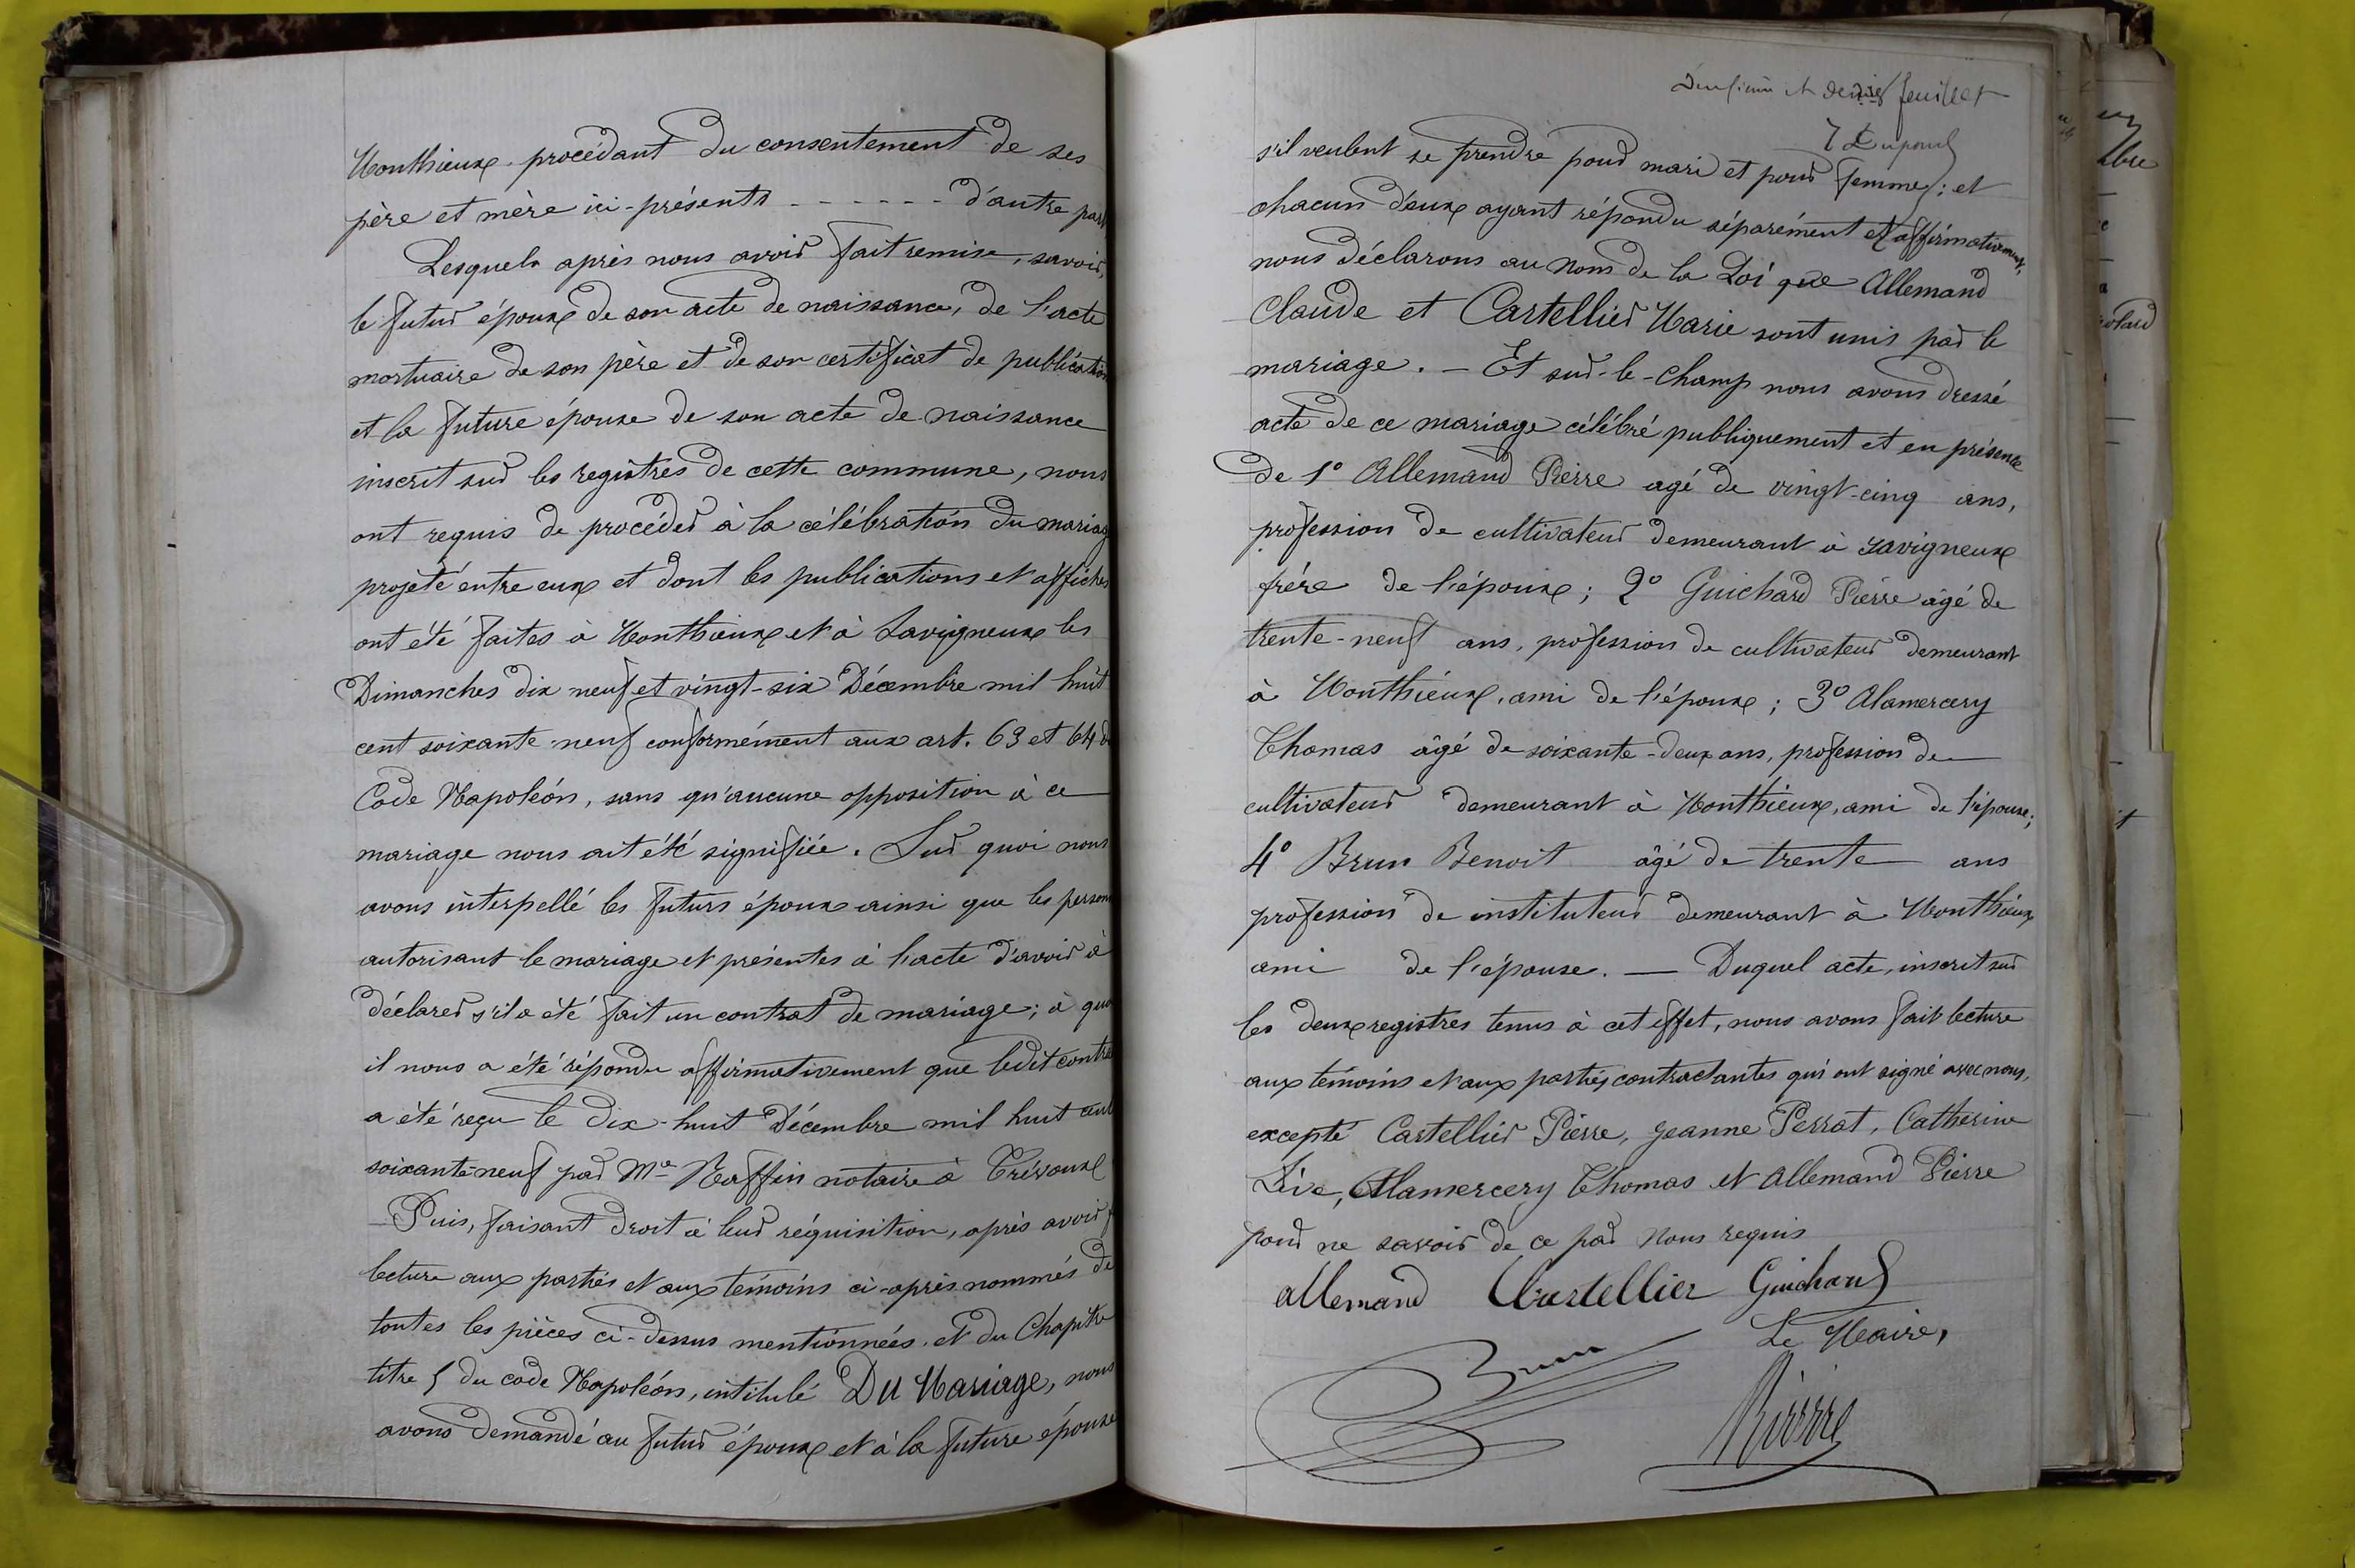 Monthieux procédant du consentement de ses
père et mère ici-présents - - - - - - d'autre part
Lesquels après nous avoir fait remise, savoir,
le futur époux de son acte de naissance, de l'acte
mortuaire de son père et de son certificat de publication
et la future épouse de son acte de naissance
inscrit sur les registres de cette commune, nous
ont requis de procéder à la célébration du mariag
projeté entre eux et dont les publications et affiches
ont été faites à Monthieux et à Savigneux les
Dimanches dix neuf et vingt-six Décembre mil huit
cent soixante-neuf conformément aux art. 63 et 64 d
Code Napoléon, sans qu'aucune opposition à ce
mariage nous ait été signifiée. Sur quoi nous
avons interpellé les futurs époux ainsi que les person
autorisant le mariage et présentes à l'acte d'avoir à
déclarer s'il a été fait un contrat de mariage; à quo
il nous a été répondu affirmativement que ledit contra
a été reçu le dix-huit Décembre mil huit cent
soixante-neuf par Me Raffin notaire à Trévoux
Puis, faisant droit à leur réquisition, après avoir f
lecture aux parties et aux témoins ci-après nommés de
toutes les pièces ci-dessus mentionnées, et du Chapitre
titre 5 du code Napoléon, intitulé Du Mariage, nous
avons demandé au futur époux et à la future épouse
Deuxième et dernier feuillet
s'il veulent se prendre pour mari et pour femme; et
chacun d'eux ayant répondu séparément et affirmativement,
nous déclarons au nom de la Loi que Allemand
Claude et Castellier Marie sont unis par le
mariage. - Et sur-le-champ nous avons dressé
acte de ce mariage célébré publiquement et en présence
de 1° Allemand Pierre agé de vingt-cinq ans,
profession de cultivateur demeurant à Savigneux
frère de l'époux; 2° Guichard Pierre âgé de
trente-neuf ans, profession de cultivateur demeurant
à Monthieux, ami de l'époux; 3° Alamercery
Thomas âgé de soixante-deux ans, profession de
cultivateur demeurant à Monthieux, ami de l'épouse;
4° Brun Benoit âgé de trente ans
profession de instituteur demeurant à Monthieux
ami de l'épouse. — Duquel acte, inscrit sur
les deux registres tenus à cet effet, nous avons fait lecture
aux témoins et aux parties contractantes qui ont signé avec nous,
excepté Castellier Pierre, Jeanne Perrat, Catherine
Alamercery Thomas et Allemand Pierre
pour ne savoir de ce par nous requis
allemand Castellier Guichard
Le Maire,
Brun